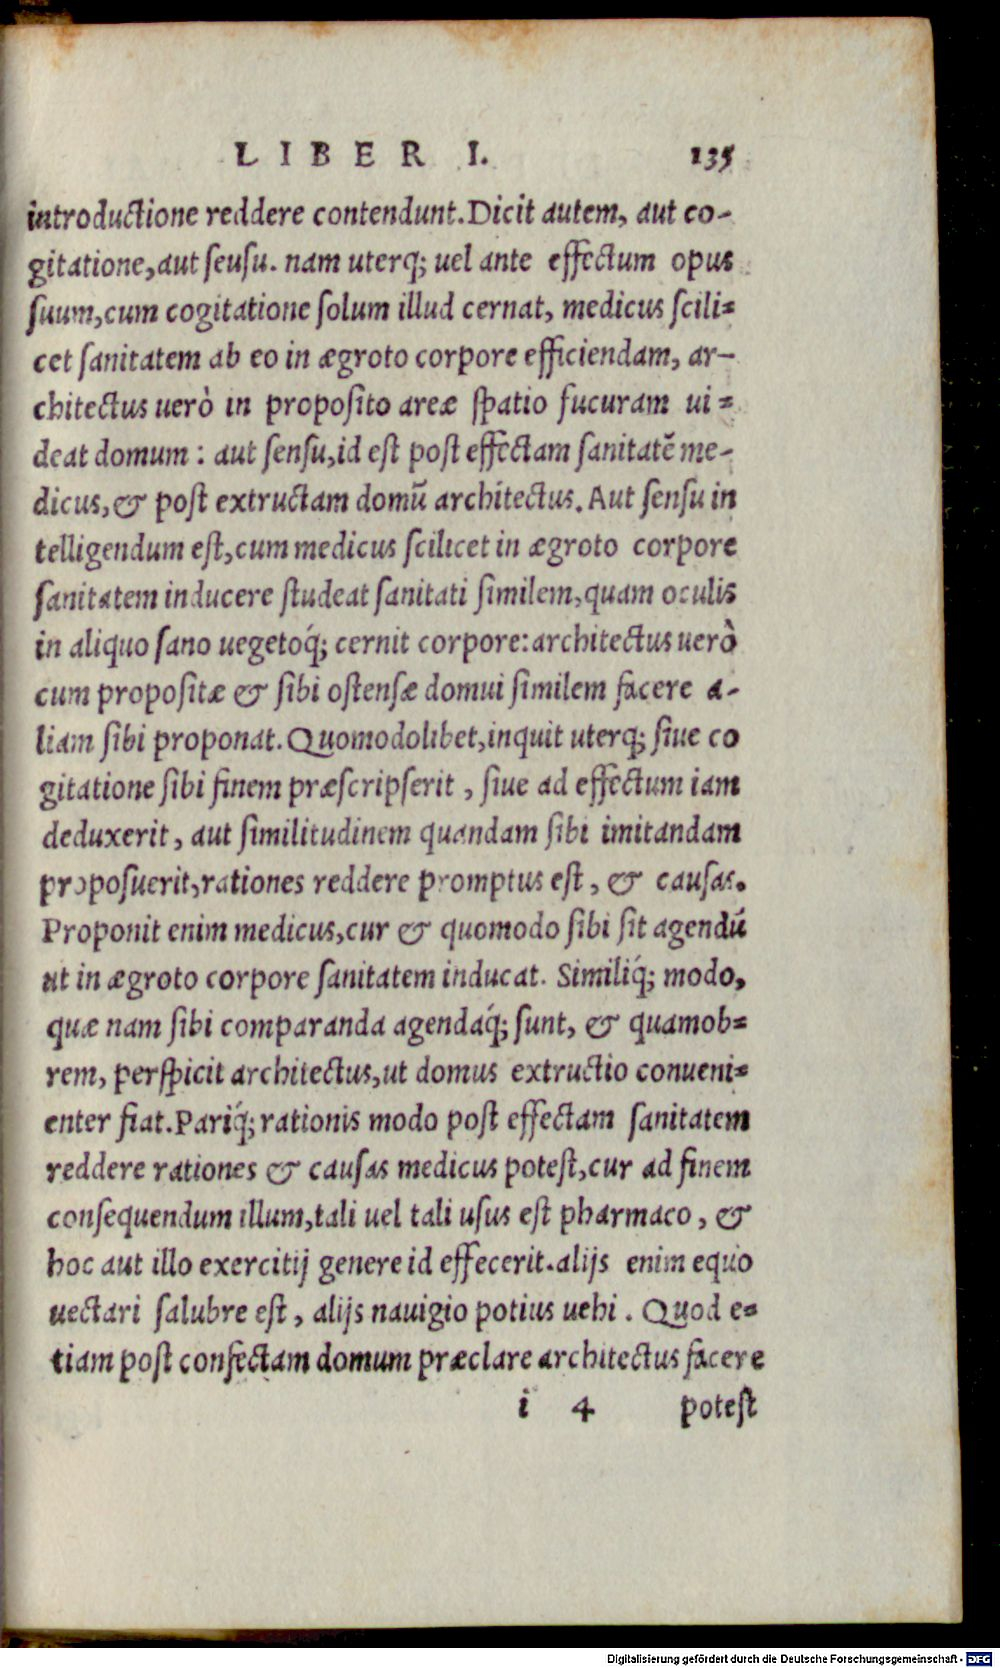 LIBER I. 135
introductione reddere contendunt. Dicit autem, aut co-
gitatione, aut seusu. nam uterq; uel ante effectum opus
suum, cum cogitatione solum illud cernat, medicus scili-
cet sanitatem ab eo in ægroto corpore efficiendam, ar-
chitectus uerò in proposito areæ spatio fucuram ui-
deat domum: aut sensu, id est post effectam sanitatē me-
dicus, & post extructam domū architectus. Aut sensu in
telligendum est, cum medicus scilicet in ægroto corpore
sanitatem inducere studeat sanitati similem, quam oculis
in aliquo sano uegetoq́; cernit corpore: architectus uerò
cum propositæ & sibi ostensæ domui similem facere a-
liam sibi proponat. Quomodolibet, inquit uterq; siue co
gitatione sibi finem præscripserit, siue ad effectum iam
deduxerit, aut similitudinem quandam sibi imitandam
proposuerit, rationes reddere promptus est, & causas.
Proponit enim medicus, cur & quomodo sibi sit agendū
ut in ægroto corpore sanitatem inducat. Similiq́; modo,
quæ nam sibi comparanda agendaq́; sunt, & quamob-
rem, perspicit architectus, ut domus extructio conueni-
enter fiat. Pariq́; rationis modo post effectam sanitatem
reddere rationes & causas medicus potest, cur ad finem
consequendum illum, tali uel tali usus est pharmaco, &
hoc aut illo exercitij genere id effecerit. alijs enim equo
uectari salubre est, alijs nauigio potius uehi. Quod e-
tiam post confectam domum præclare architectus facere
i 4 potest
Digitalisierung gefördert durch die Deutsche Forschungsgemeinschaft - DFG